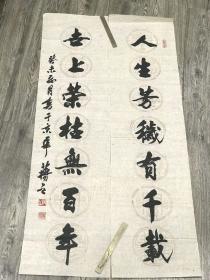 人生芳秽有千载
世上荣枯無百年
癸未孟月書于京華